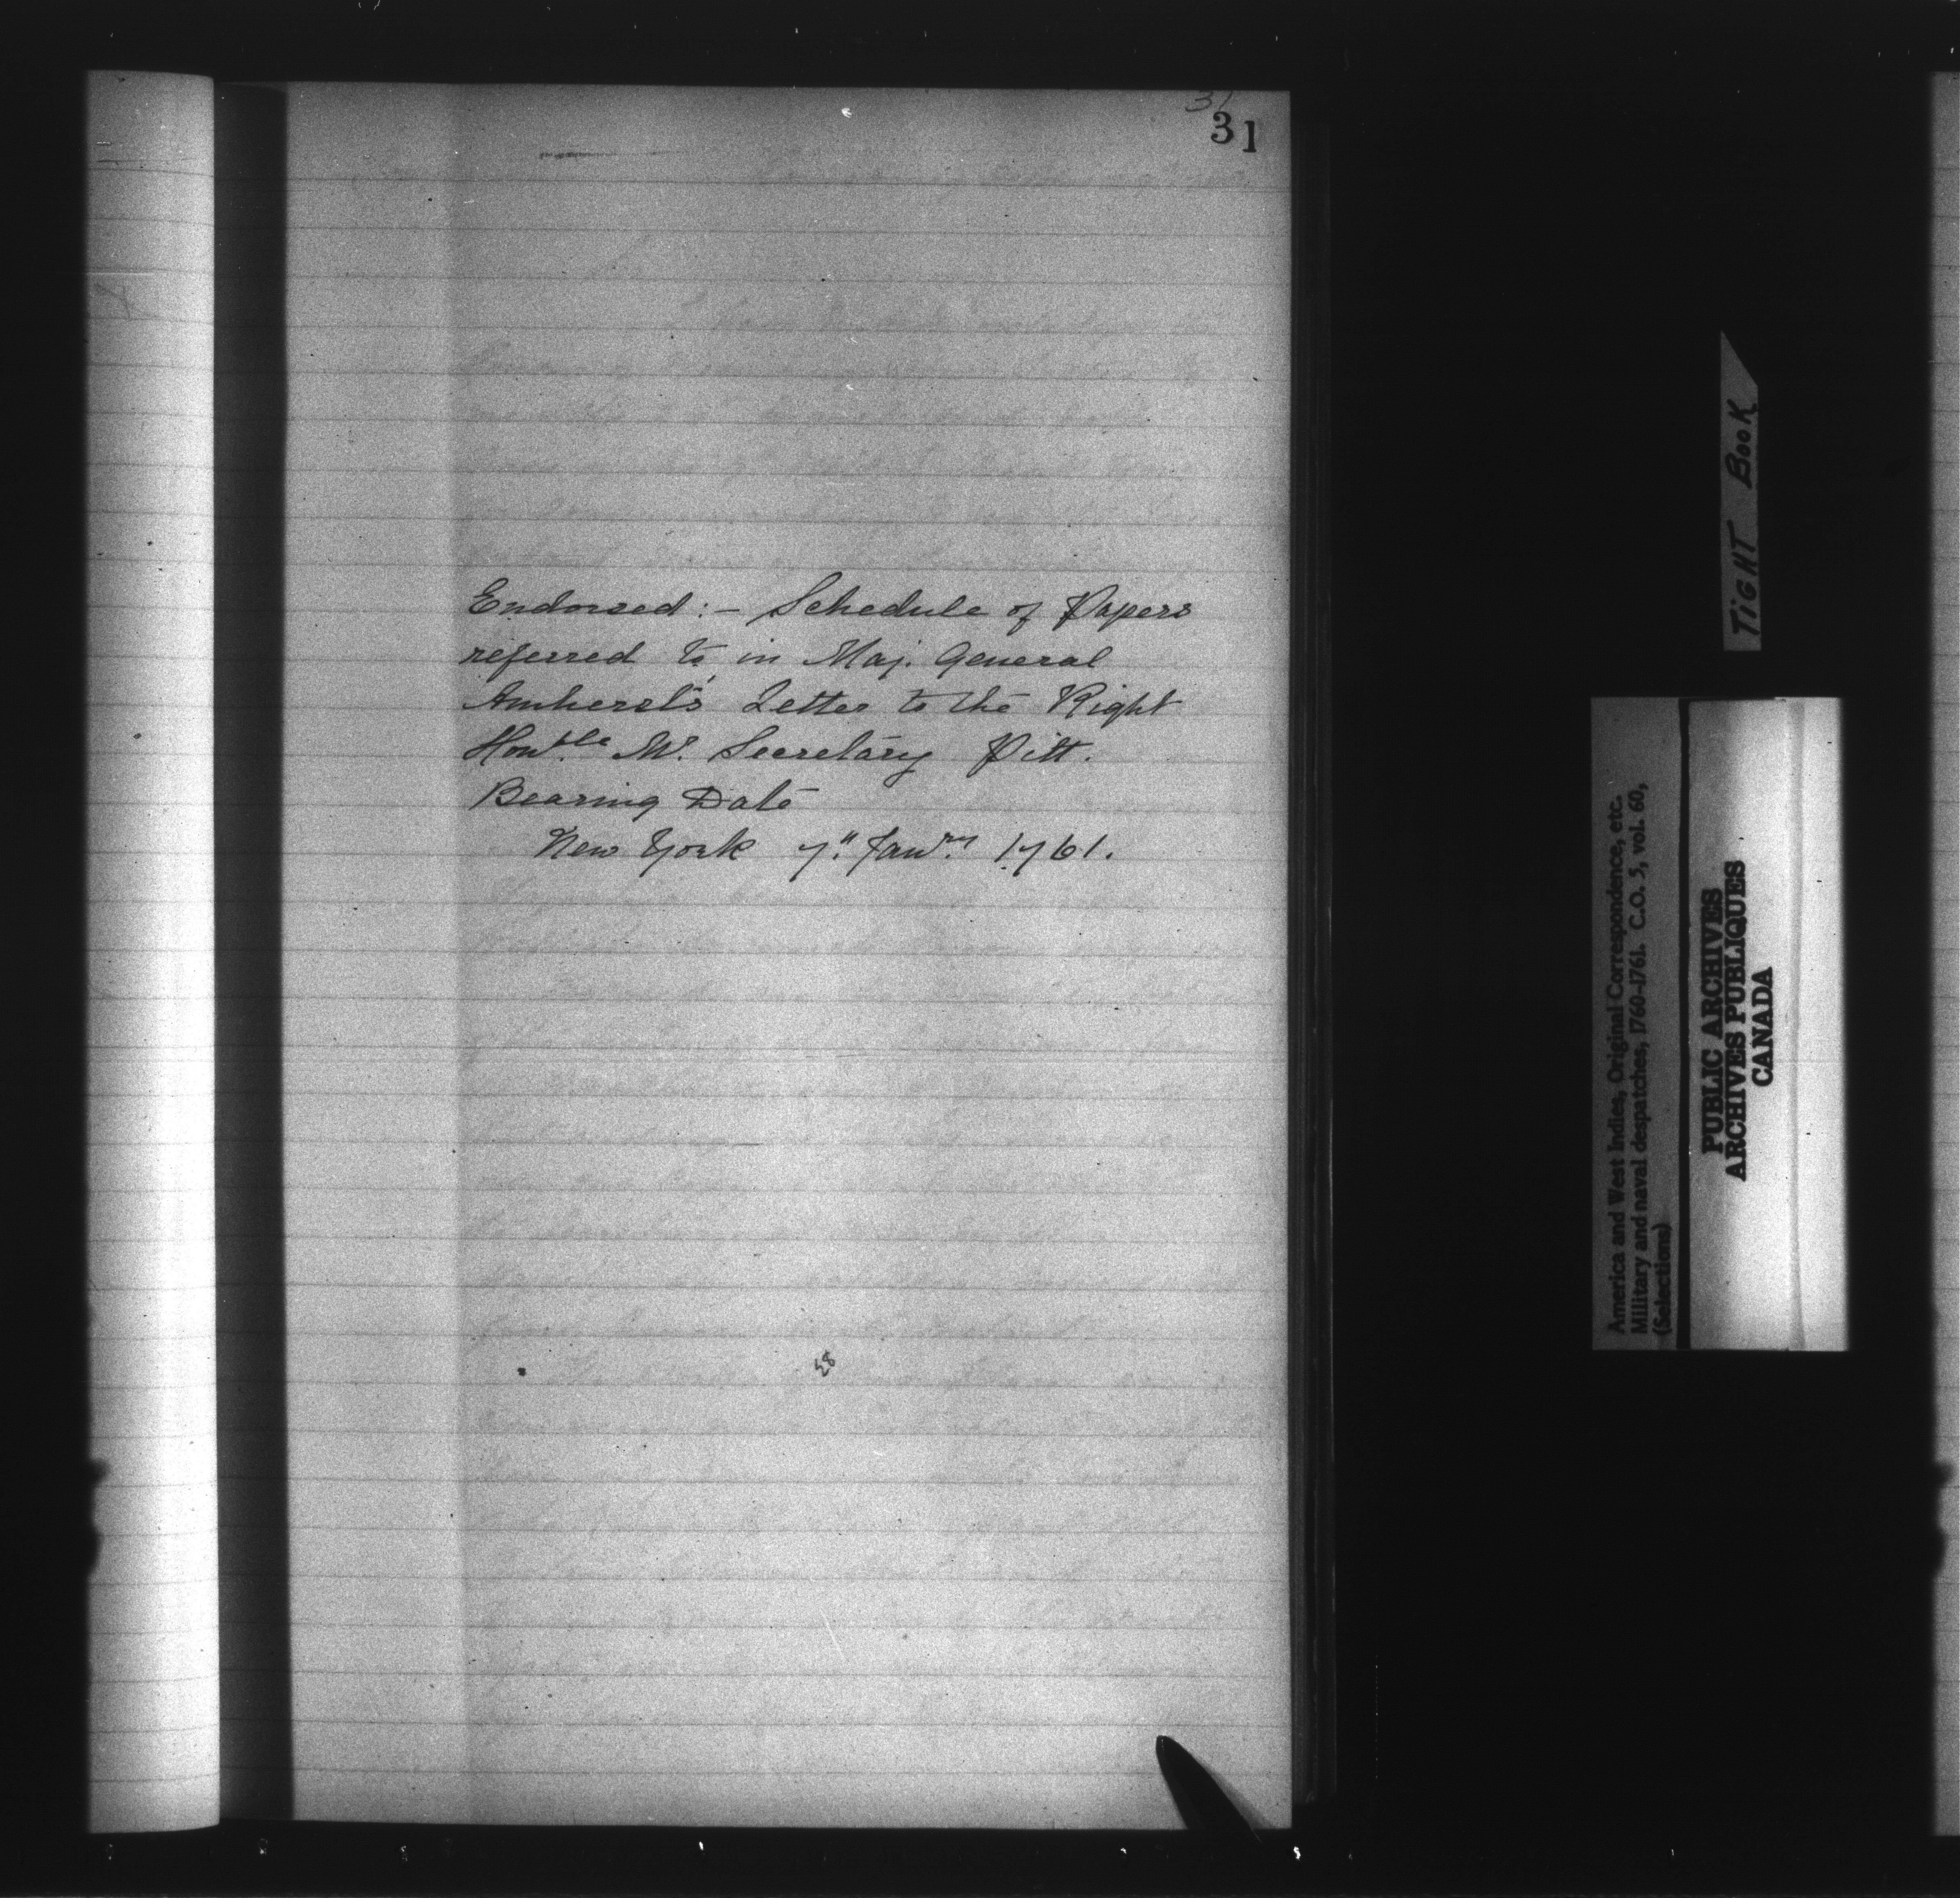 31
31
Endorsed:- Schedule of Papers
referred to in Maj. General
Amherst's Letter to the Right
Hon.ble Mr. Secretary Pitt.
Bearing Date
New York 7." Jan.ry 1761.
TIGHT BOOK
America and West Indies, Original Correspondence, etc.
Military and naval despatches, 1760-1761. C.O. 5, vol. 60,
(Selections)
PUBLIC ARCHIVES
ARCHIVES PUBLIQUES
CANADA